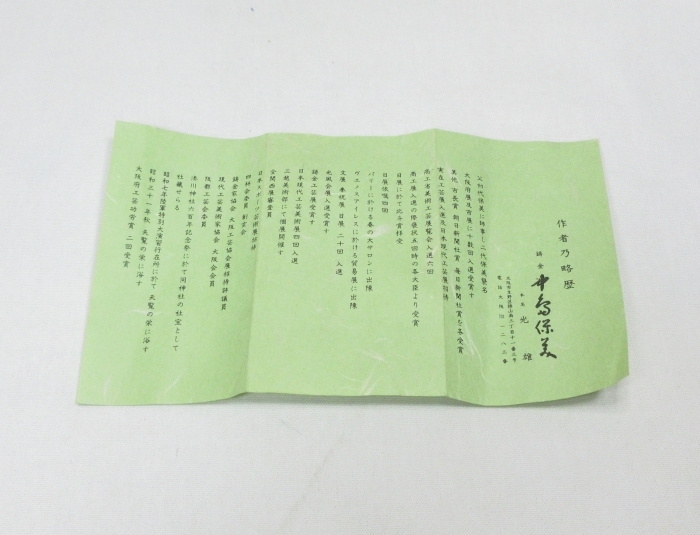 作者乃略歴
鋳金 中島保美
本名 光雄
父初代保美に師事し二代保美襲名
大阪府展及市展に十数回入選受賞す
其他 市長賞 朝日新聞社賞 毎日新聞社賞も各受賞
実在工芸展入選及日本現代工芸展招待
商工省美術工芸展覧会入選六回
商工展入選の際褒状五回時の各大臣より受賞
日展に於て北斗賞授受
日展依嘱四回
パリーに於ける春の大サロンに出陳
ヴエノスアイレスに於ける貿易展に出陳
文展 奉祝展 日展 二十回 入選
光風会展入選受賞す
鋳金工芸展受賞す
日本現代工芸美術展四回入選
三越美術部にて個展開催す
全関西展審査員
日本スポーツ芸術展招待
四科会委員 創玄会
鋳金家協会 大阪工芸協会展招待評議員
現代工芸美術家協会 大阪会会員
阪都工芸会委員
湊川神社六百年記念祭に於て同神社の社宝として
社蔵せらる
昭和七年陸軍特別大演習行在所に於て 天覧の栄に浴す
昭和三十一年秋 天覧の栄に浴す
大阪府工芸功労賞 二回受賞